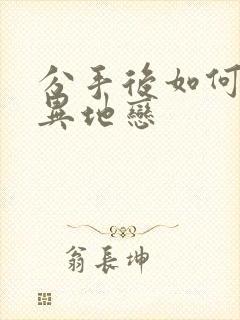 分手後如何
異地戀
翁長坤